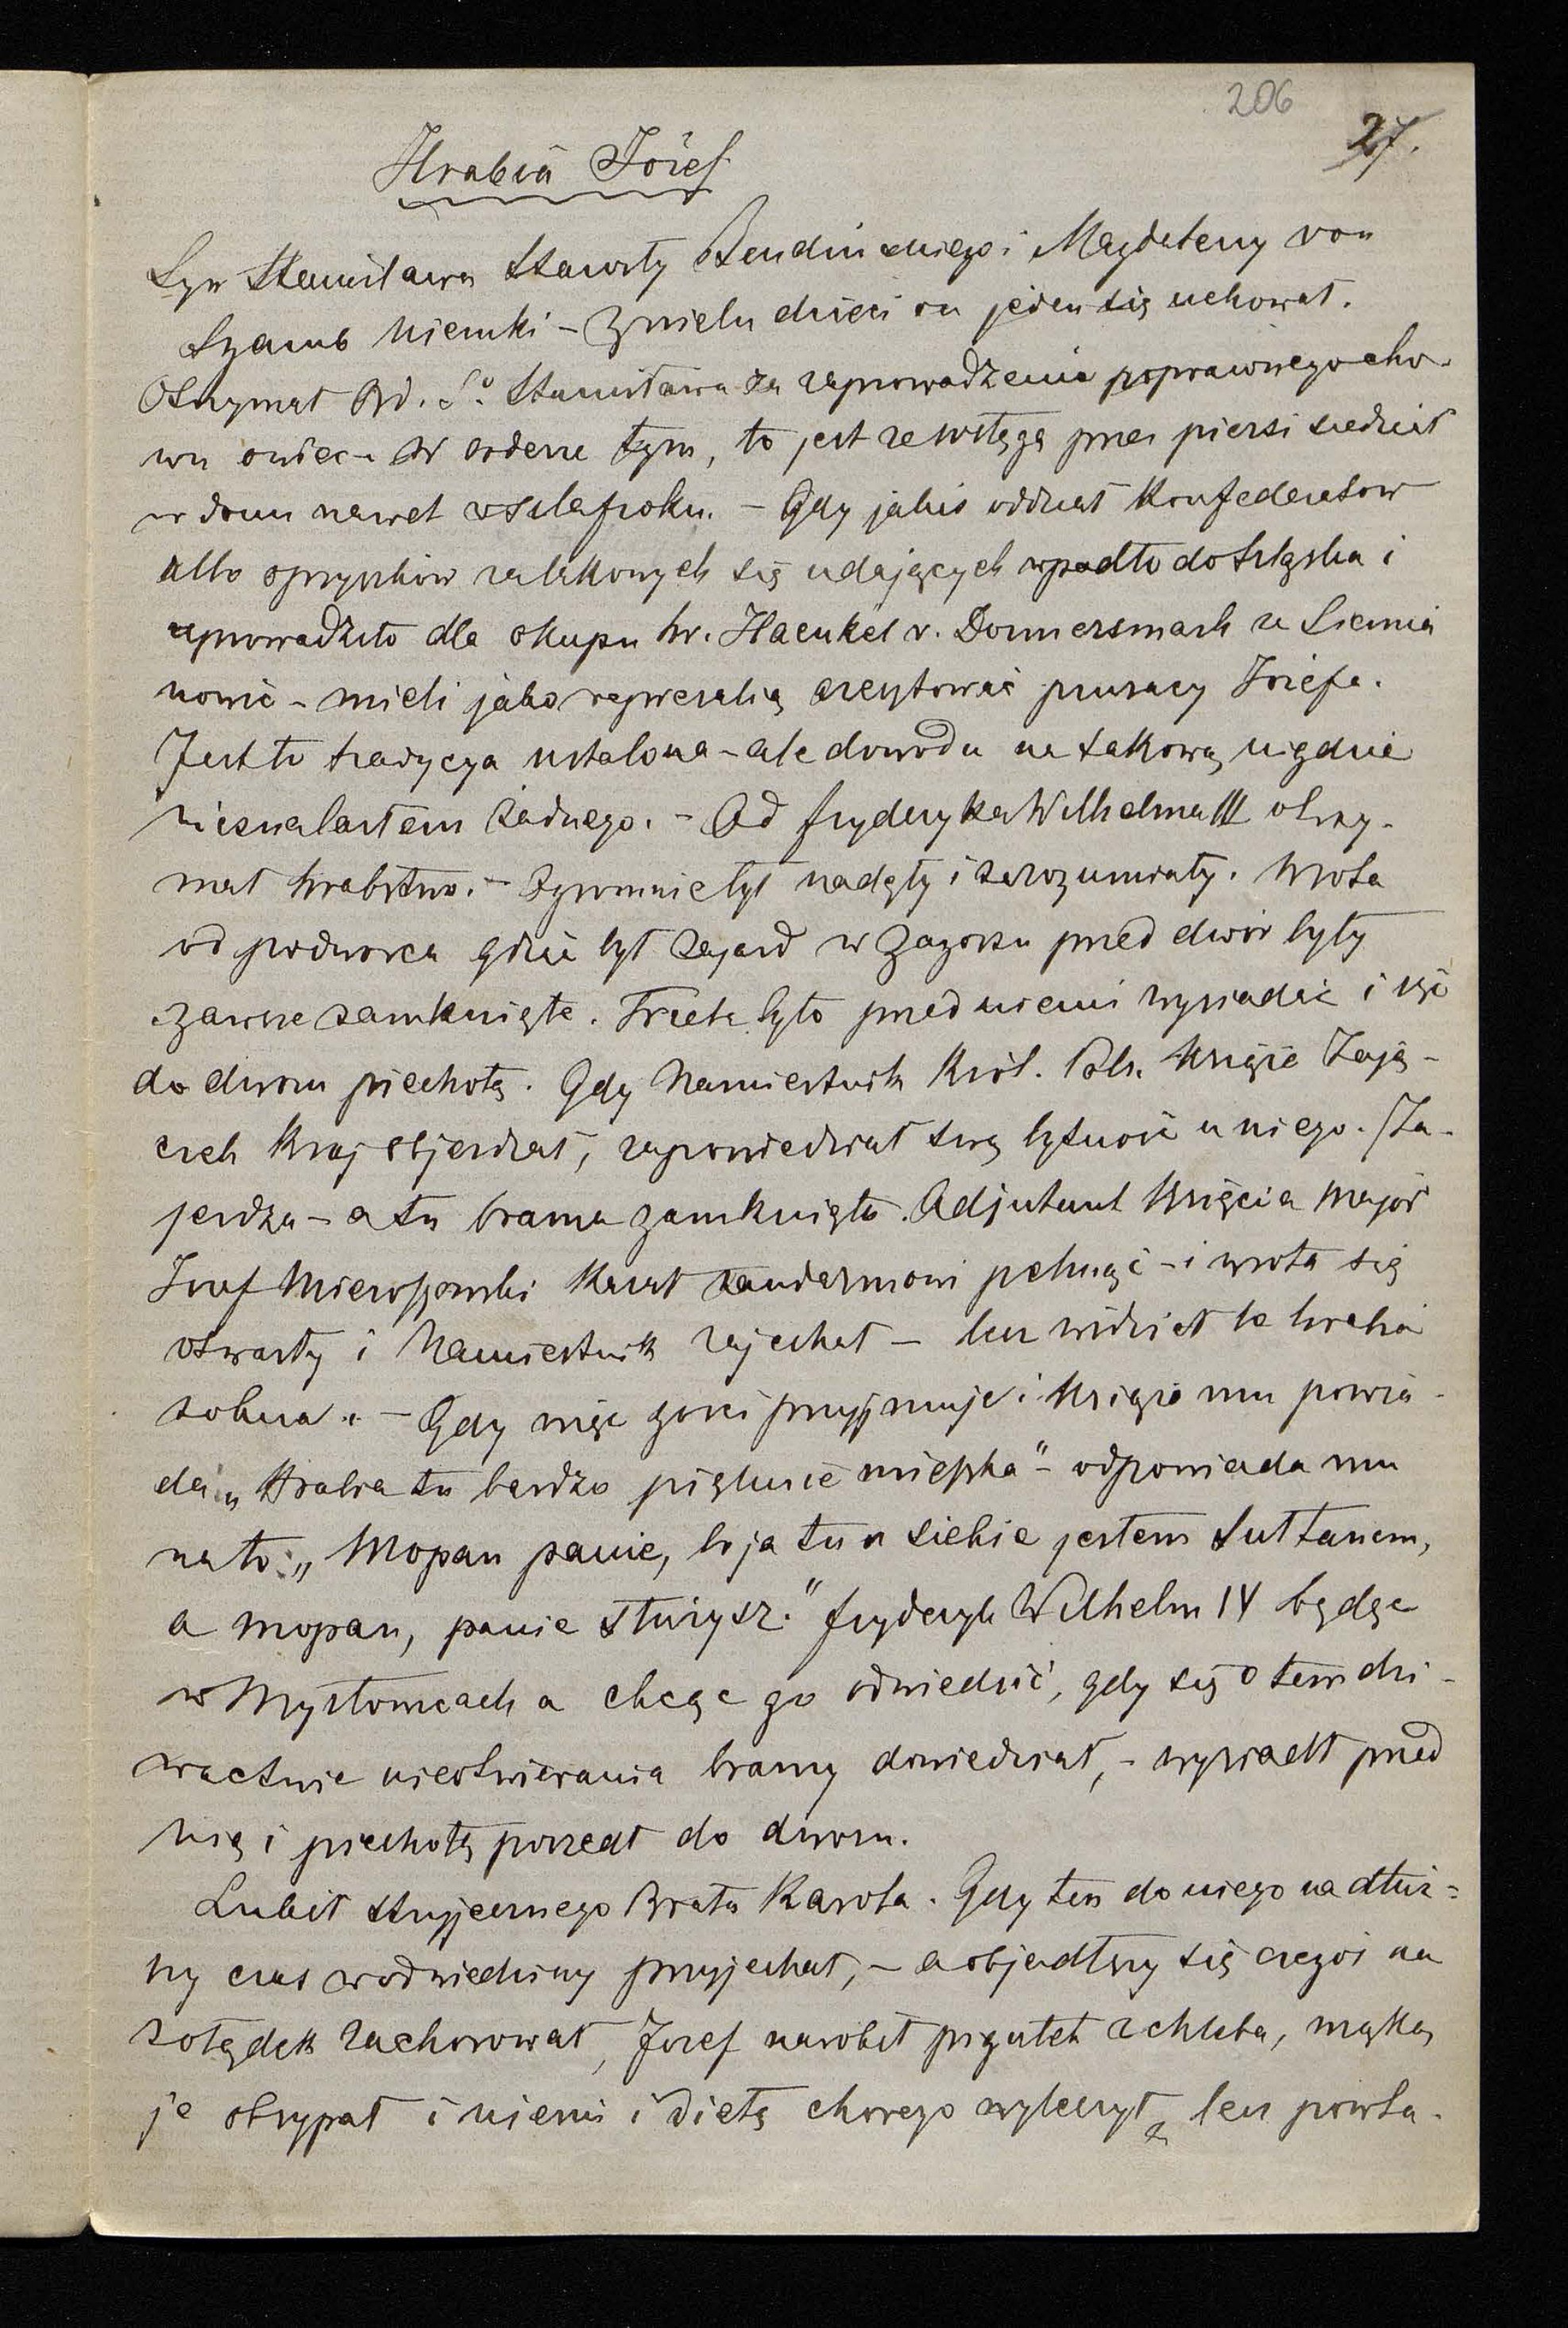 206
27.
Hrabia Józef
Syn Stanisława Starosty Bendińskiego i Magdaleny von
Szamb Niemki – Z wielu dzieci on jeden się uchował.
Otrzymał Ord. Sº Stanisława za zaprowadzenie poprawnego cho-
wu owiec – W orderze tym, to jest ze wstęgą przez piersi siedział
w domu nawet w szlafroku. – Gdy jakiś oddział Konfederatow
albo opryszków za takowych się udających wpadło do Szląska i
uprowadziło dla okupu hr. Haenkel v. Donnersmark ze Siemia
nowic – mieli jako represalią aresztować prusacy Józefa.
Jest to tradycya ustalona – ale dowodu na takową nigdzie
nieznalazłem żadnego. – Od fryderyka Wilhelma III otrzy-
mał hrabstwo. – Ogromnie był nadęty i zarozumiały. Wrota
od podworca gdzie był zajazd w Zagorzu przed dwór były
zawsze zamknięte. Trzeba było przed niemi wysiadać i iść
do dworu piechotą. Gdy Namiestnik Król. Pols. Książe Zają-
czek Kraj objeżdżał, zapowiedział swą bytność u niego. Za-
jeżdża – a tu brama zamknięta. Adjutant Księcia Major
Józef Mieroszowski Kazał żandarmowi pchnąć – i wrota się
otwarły i Namiestnik zajechał – lecz widział to hrabia
z okna. – Gdy więc gości przyjmuje i Książe mu powia-
da „Hrabia tu bardzo pięknie mieszka" – odpowiada mu
na to: „Mopan panie, bo ja tu u siebie jestem Sułtanem,
a mopan, panie służysz." fryderyk Wilhelm IV będąc
w Mysłowicach a chcąc go odwiedzić, gdy się o tem dzi-
wactwie nieotwierania bramy dowiedział, – wysiadł przed
nią i piechotą poszedł do dworu.
Lubił stryjecznego Brata Karola. Gdy ten do niego na dłuż-
szy czas w odwiedziny przyjechał, – a objadłszy się czegoś na
żołądek zachorował, Józef narobił pigułek z chleba, mąką
je obsypał i niemi i dietą chorego wyleczył, lecz powta-